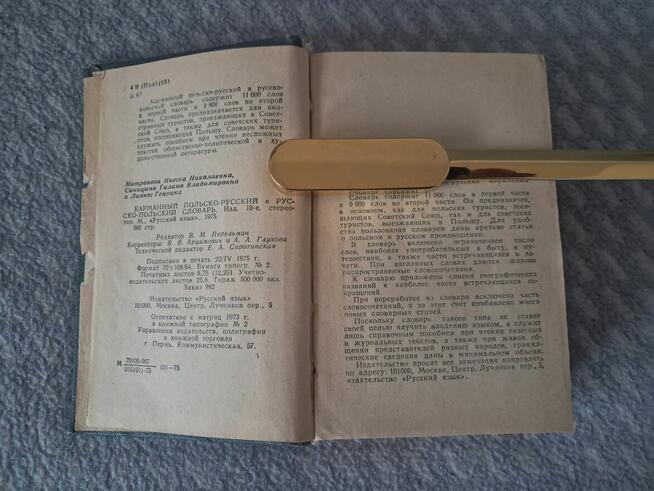 4 И (Пол) (03)
М 67
Карманный польско-русский и русско-
польский словарь содержит 11 000 слов
в первой части и 9 800 слов во второй
части. Словарь предназначается для ино-
странных туристов, приезжающих в Совет-
ский Союз, а также для советских тури-
стов, посещающих Польшу. Словарь может
служить пособием при чтении несложных
текстов общественно-политической и ху-
дожественной литературы.
Митронова Инесса Николаевна,
Синицына Галина Владимировна
и Липкес Генрика
КАРМАННЫЙ ПОЛЬСКО-РУССКИЙ и РУС-
СКО-ПОЛЬСКИЙ СЛОВАРЬ. Изд. 10-е, стерео-
тип. М., «Русский язык», 1975.
560 стр.
Редактор В. М. Перельман
Корректоры: В. В. Арцимович и А. А. Глухова
Технический редактор Е. А. Сиротинская
Подписано в печать 22/IV 1975 г.
Формат 70×108/64. Бумага типогр. № 2
Печатных листов 8,75 (12,25). Учетно-
издательских листов 25,8. Тираж 500 000 экз.
Заказ 982
Издательство «Русский язык»
101000, Москва, Центр, Лучников пер., 5
Отпечатано с матриц 1973 г.
в книжной типографии № 2
Управления издательств, полиграфии
и книжной торговли
г. Пермь, Коммунистическая, 57.
М
101—75
Словарь содержит 11 000 слов в первой части
и 9 800 слов во второй части. Он предназначен,
в основном, как для польских туристов, посе-
щающих Советский Союз, так и для советских
туристов, выезжающих в Польшу. Для удоб-
ства пользования словарем даны краткие статьи
о польском и русском произношении.
В словарь включено ограниченное число
слов, наиболее употребительных в быту, в пу-
тешествии, а также часто встречающихся в пе-
чати. При заглавных словах даются широко
распространенные словосочетания.
К словарю приложены списки географических
названий и наиболее часто встречающихся со-
кращений.
При переработке из словаря исключена часть
словосочетаний, и за этот счет прибавлено много
новых словарных статей.
Поскольку словарь такого типа не ставит
своей целью научить владению языком, а служит
лишь справочным пособием при чтении газетных
и журнальных текстов, а также при живом об-
щении представителей разных народов, грамма-
тические сведения даны в минимальном объеме.
Издательство просит все замечания направлять
по адресу: 101000, Москва, Центр, Лучников пер., 5,
издательство «Русский язык».